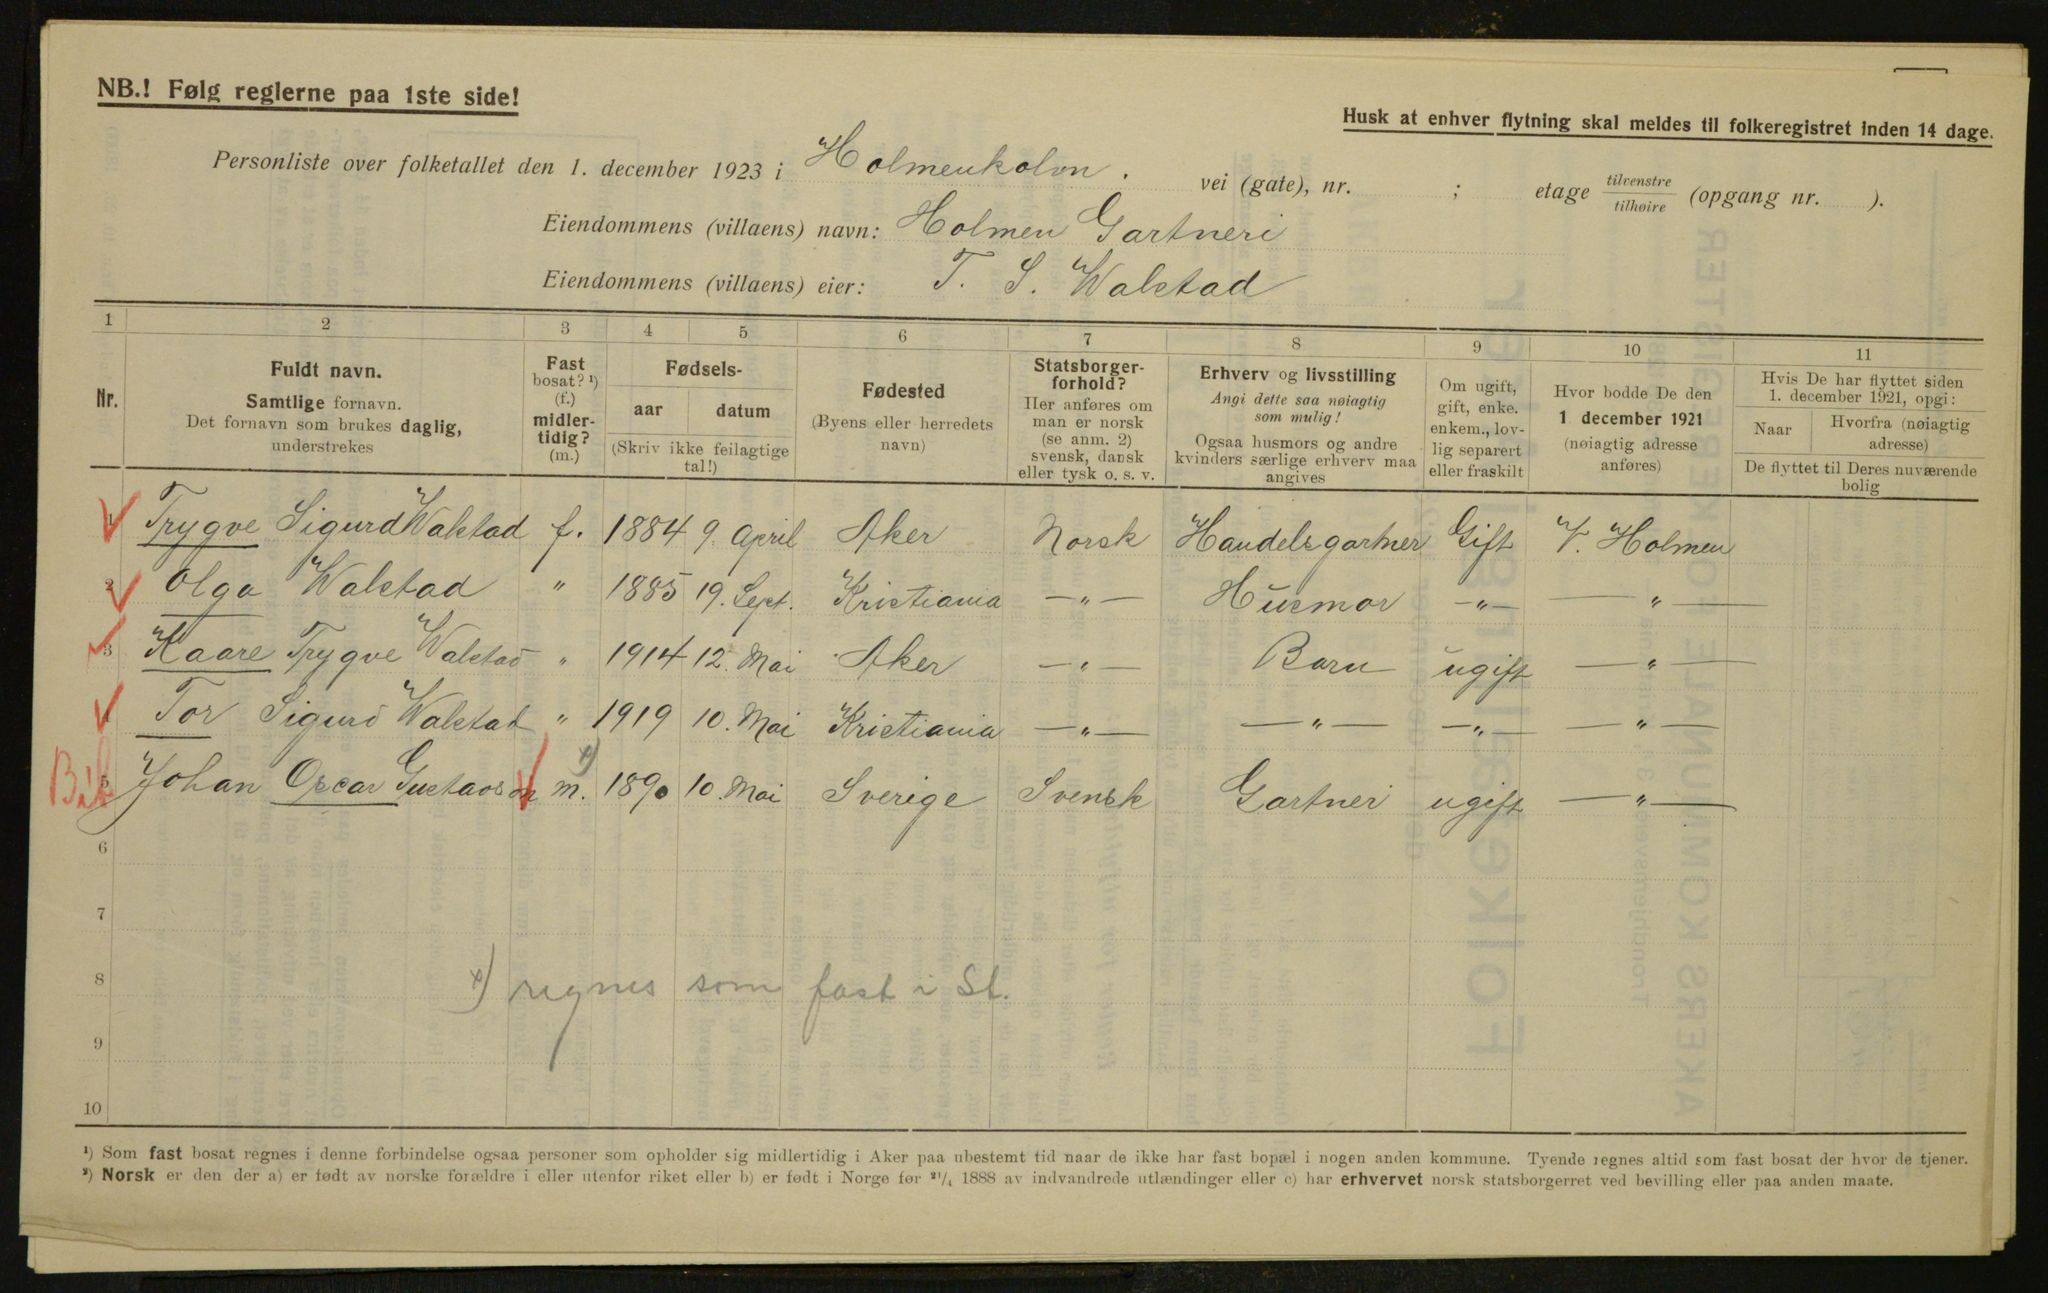 NB.! Følg reglerne paa 1ste side!
Husk at enhver flytning skal meldes til folkeregistret inden 14 dage.
Personliste over folketallet den 1. december 1923 i Holmenkolen. vei (gate), nr. ; etage tilvenstre/tilhøire (opgang nr. ).
Eiendommens (villaens) navn: Holmen Gartneri
Eiendommens (villaens) eier: T. S. Walstad
1 2 3 4 5 6 7 8 9 10 11
Nr.
Fuldt navn.
Samtlige fornavn.
Det fornavn som brukes daglig,
understrekes
Fast
bosat? ¹)
(f.)
midler-
tidig?
(m.)
Fødsels-
aar datum
(Skriv ikke feilagtige
tal!)
Fødested
(Byens eller herredets
navn)
Statsborger-
forhold?
Her anføres om
man er norsk
(se anm. 2)
svensk, dansk
eller tysk o. s. v.
Erhverv og livsstilling
Angi dette saa nøiagtig
som mulig!
Ogsaa husmors og andre
kvinders særlige erhverv maa
angives
Om ugift,
gift, enke.
enkem., lov-
lig separert
eller fraskilt
Hvor bodde De den
1 december 1921
(nøiagtig adresse
anføres)
Hvis De har flyttet siden
1. december 1921, opgi:
Naar Hvorfra (nøiagtig
adresse)
De flyttet til Deres nuværende
bolig
1 Trygve Sigurd Walstad f. 1884 9. April Aker Norsk Handelsgartner Gift V. Holmen
2 Olga Walstad " 1885 19. Sept. Kristiania —"— Husmor —"— —"—
3 Kaare Trygve Walstad " 1914 12. Mai Aker —"— Barn ugift —"—
4 Tor Sigurd Walstad " 1919 10. Mai Kristiania —"— —"— —"— —"—
5 Johan Oscar Gustavsen m. x) 1890 10. Mai Sverige Svensk Gartner ugift —"—
6
7
8
x) regnes som fast i St.
9
10
¹) Som fast bosat regnes i denne forbindelse ogsaa personer som opholder sig midlertidig i Aker paa ubestemt tid naar de ikke har fast bopæl i nogen anden kommune. Tyende regnes altid som fast bosat der hvor de tjener.
²) Norsk er den der a) er født av norske forældre i eller utenfor riket eller b) er født i Norge før ²¹/₄ 1888 av indvandrede utlændinger eller c) har erhvervet norsk statsborgerret ved bevilling eller paa anden maate.